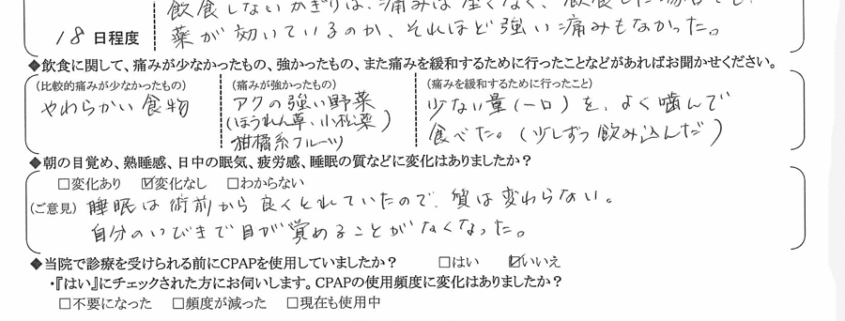 飲食しないかぎりは、痛みは全くなく、飲食した場合でも、
18 日程度 薬が効いているのか、それほど強い痛みもなかった。
◆飲食に関して、痛みが少なかったもの、強かったもの、また痛みを緩和するために行ったことなどがあればお聞かせください。
(比較的痛みが少なかったもの) (痛みが強かったもの) (痛みを緩和するために行ったこと)
やわらかい食物 アクの強い野菜 少ない量(一口)を、よく噛んで
(ほうれん草、小松菜) 食べた。(少しずつ飲み込んだ)
柑橘系フルーツ
◆朝の目覚め、熟睡感、日中の眠気、疲労感、睡眠の質などに変化はありましたか?
□変化あり ☑変化なし □わからない
(ご意見) 睡眠は術前から良くとれていたので、質は変わらない。
自分のいびきで目が覚めることがなくなった。
◆当院で診療を受けられる前にCPAPを使用していましたか? □はい ☑いいえ
・『はい』にチェックされた方にお伺いします。CPAPの使用頻度に変化はありましたか?
□不要になった □頻度が減った □現在も使用中